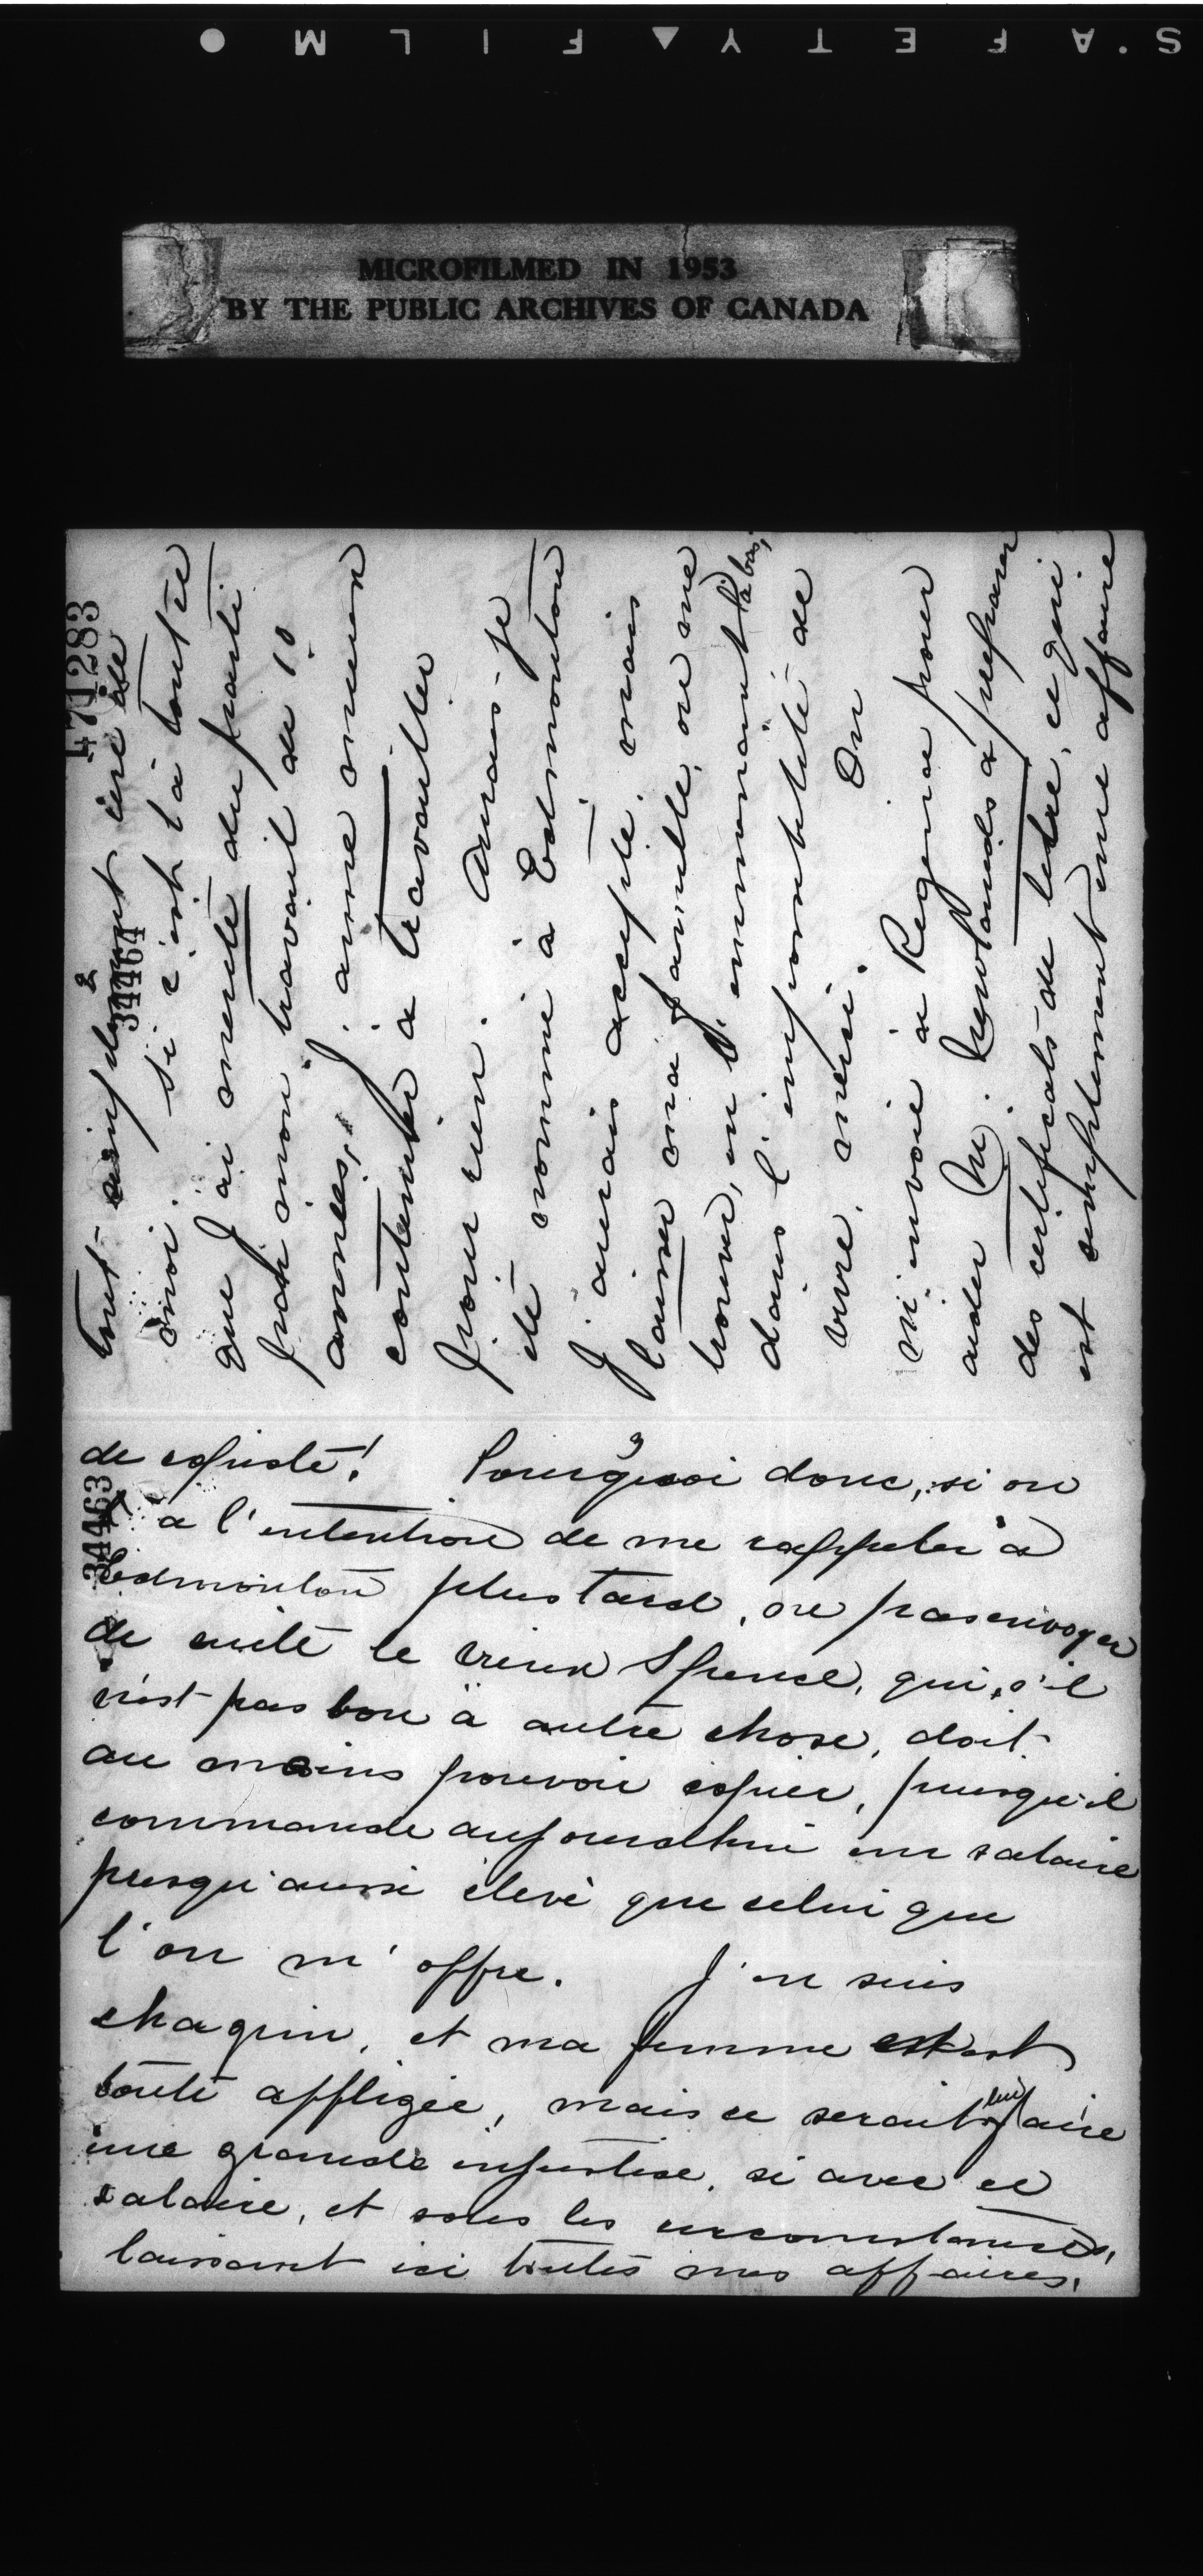 S'AFETY FILM
MICROFILMED IN 1953
BY THE PUBLIC ARCHIVES OF CANADA
471283
2
34464
tout simplement une
moi. Si c'est là toute ce
que j'ai merité du parti
pour mon travail de 10
années, j'aime mieux
continuer à travailler
pour rien. Aurais-je
été nommé à Edmonton
j'aurais accepté. mais
laisser ma famille, ou me
trouver, en l'emmenant là bas,
dans l'impossibilité de
vivre, merci. On
m'envoie à Regina pour
aider M. Newlands à préparer
des certificats de titre, ce qui
est simplement une affaire
3
34463
de copiste! Pourquoi donc, si on
a l'intention de me rappeler à
Edmonton plus tard, ne pas envoyer
de suite le vieux Spence, qui, s'il
n'est pas bon à autre chose, doit
au moins pouvoir copier, puisqu'il
commande aujourdhui un salaire
presqu'aussi élevé que celui que
l'on m'offre. J'en suis
chagrin, et ma femme est
toute affligée, mais ce serait lui faire
une grande injustice, si avec ce
salaire, et sous les circonstances,
laissant ici toutes mes affaires,